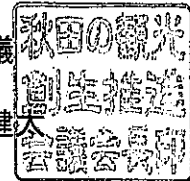 秋田の観光
創生推進
会議会長印